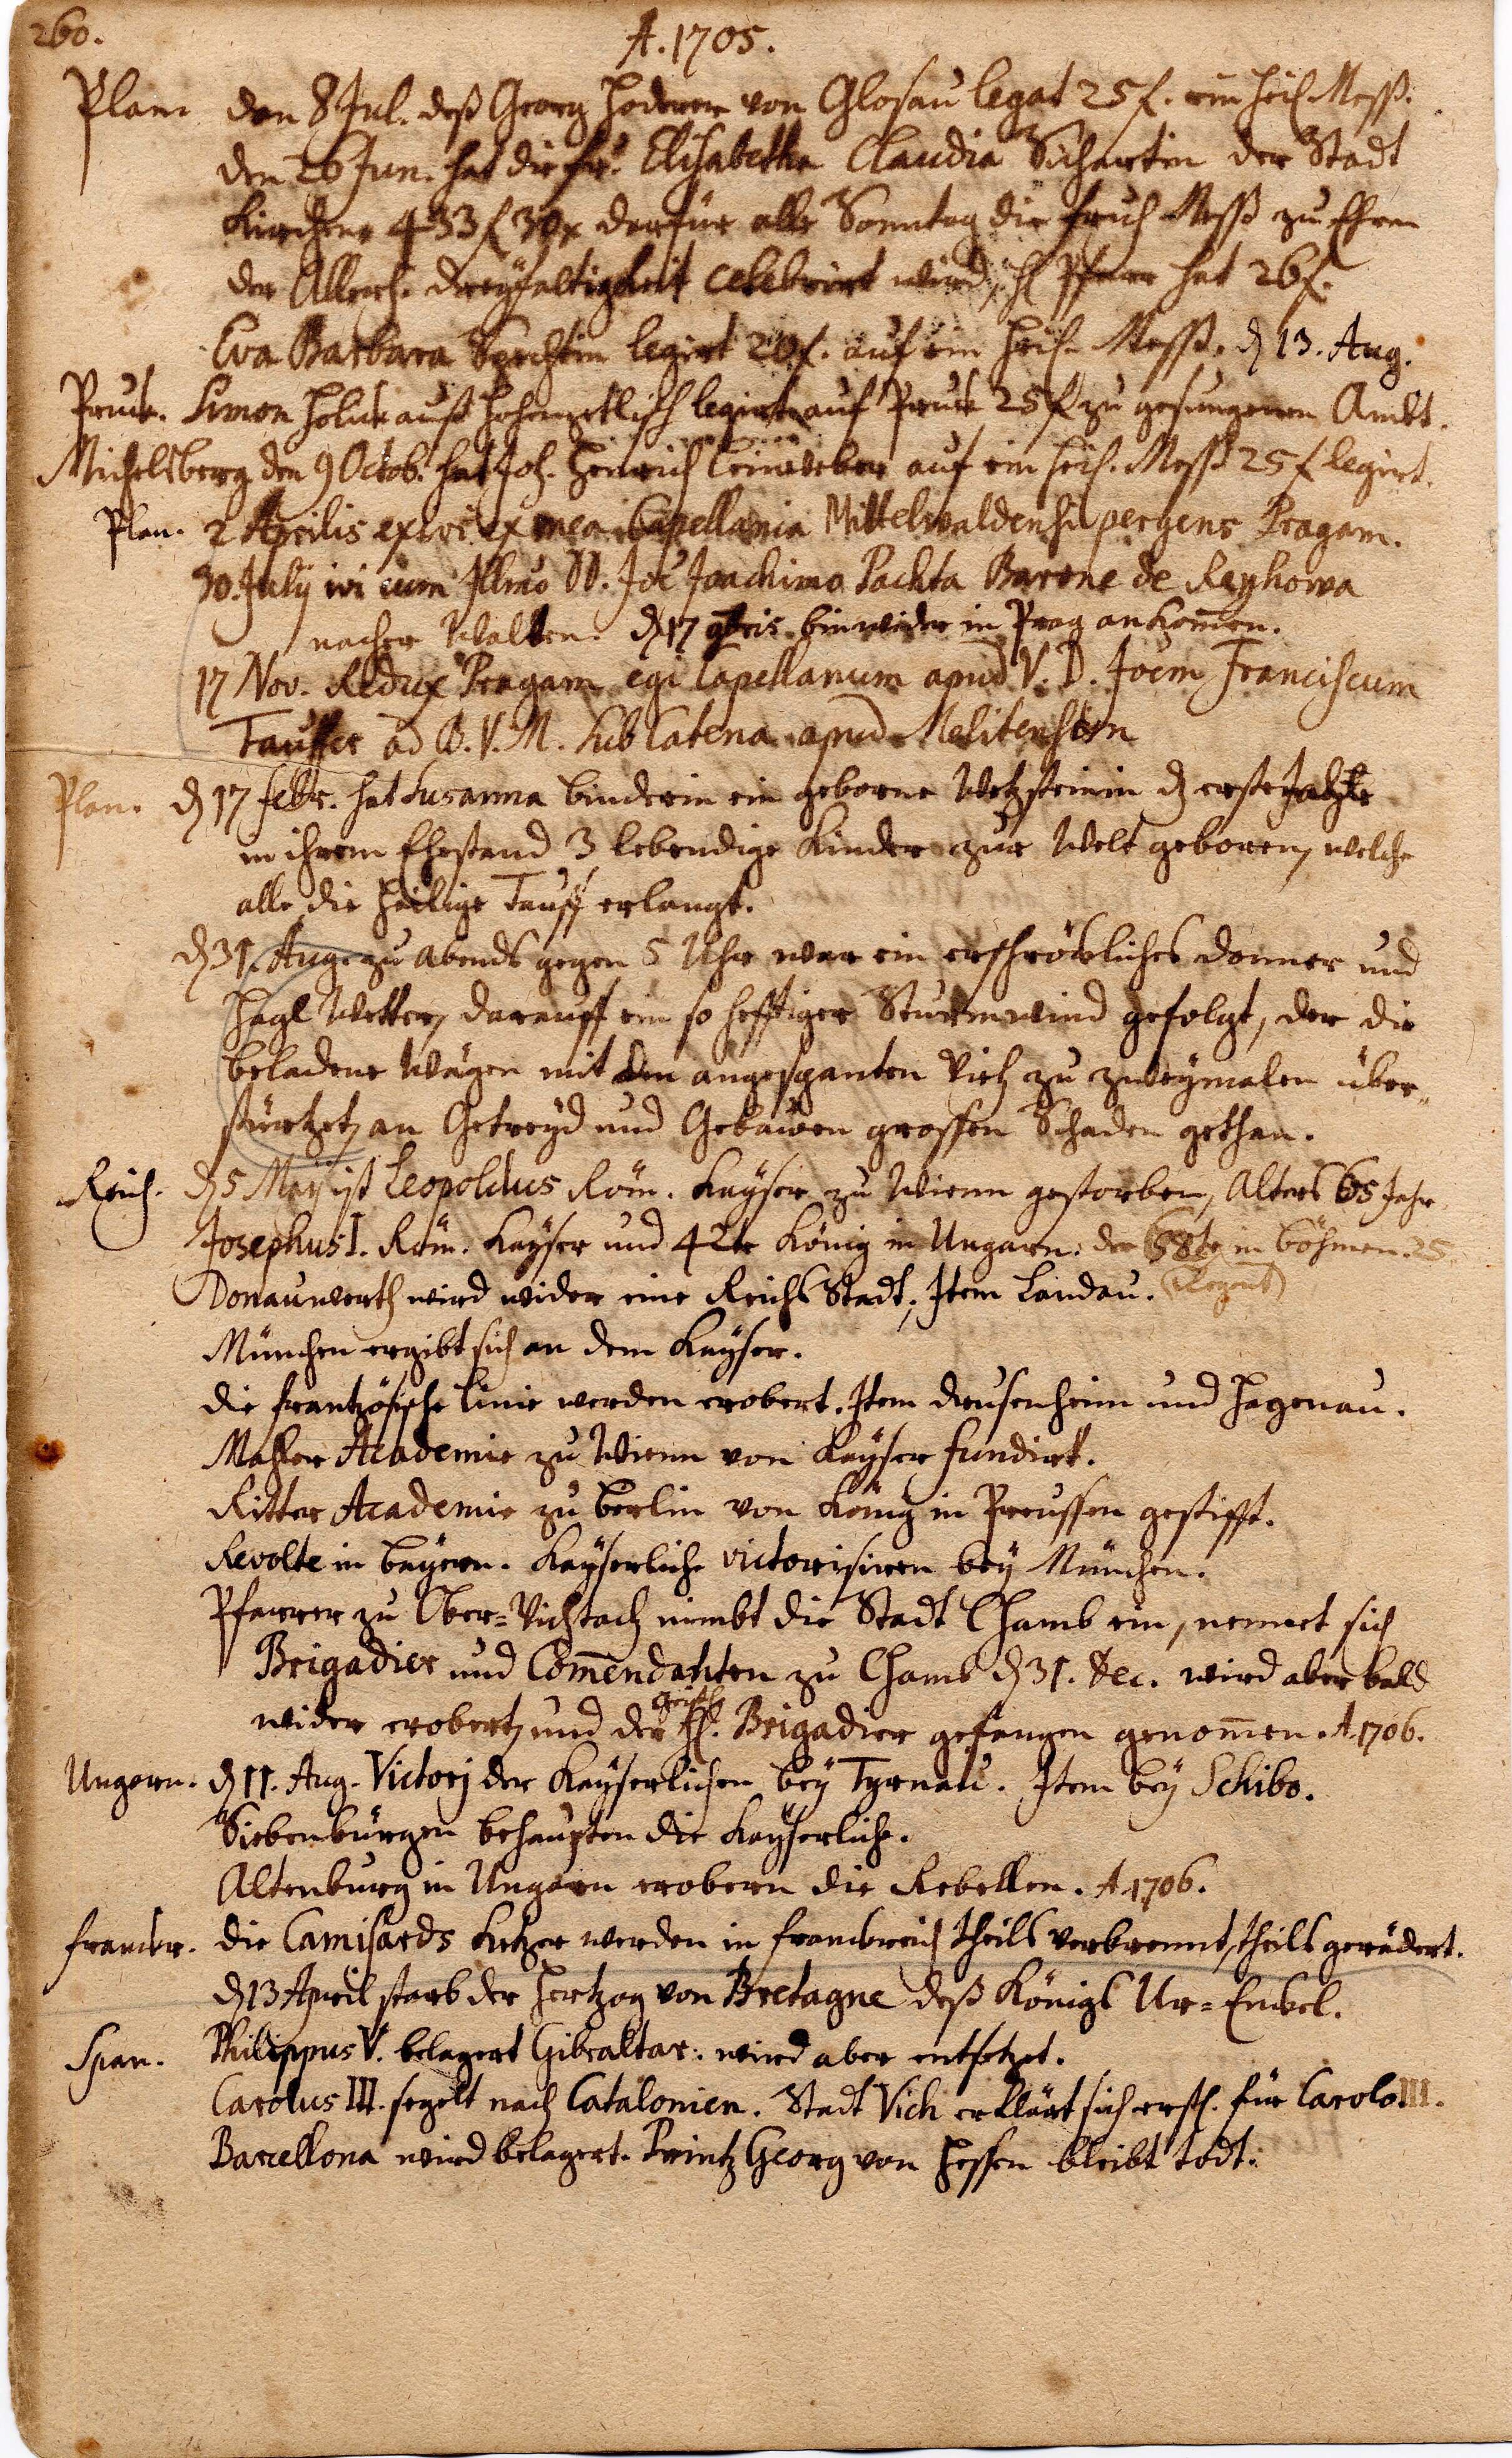 260.
A. 1705.
Plan. den 8 Jul. deß Georg Hoderer von Glosau legat 25 f. ein heil. Mess.
den 26 Jun. hat die fr. Elisabetha Claudia Sichartin der Stadt
Kirchen 433 f 30 x darfür alle Sonntag die fruh Mess zu Ehren
der Allerh. Dreyfaltigkeit celebrirt wird, H Pfarr hat 26 f.
Eva Barbara legirt 20 f. auf ein heil. Mess. d 13. Aug.
Pruk. Simon Holuk auß legirt auf Pruk 25 f zu gesungenen Ambt.
Michelsberg den 9 Octob. hat Joh. Henrich Leinweber auf ein heil. Mess 25 f legirt.
Plan. 2 Aprilis exivi ex mea Capellania Mittelwaldensi pergens Pragam.
30. July ivi cum Illmo D. Joe Joachimo Pachta Barone de Rayhowa
nacher Walten. d 17 9bris bin wider in Prag ankom̄en.
17 Nov. Redux Pragam egi Capellanum apud V. D. Joem Franciscum
Tauffer ad B. V. M. sub Catena apud Melitenses
Plan. d 17 febr. hat Susanna Binderin ein geborne Wetzsteinin d erste
in ihrem Ehestand 3 lebendige Kinder zur Welt geboren, welche
alle die heilige Tauff erlangt.
d 31. Aug. zu Abends gegen 5 Uhr war ein erschröckliches Donner und
Hagl Wetter, darauff ein so hefftiger Sturmwind gefolgt, der die
beladene Wägen mit den angespanten Vieh zu zweymalen über-
stürtzet, an Getreyd und Gebäwen grossen Schaden gethan.
Reich. d 5 Maij ist Leopoldus Röm. Kayser zu Wienn gestorben, Alters 65 Jahr.
Josephus I. Röm. Kayser und 42te König in Ungarn. der 58te in Böhmen. 25
Donauwerth wird wider eine Reichs Stadt, Item Landau. (Regent)
München ergibt sich an dem Kayser.
die frantzösische Linie werden erobert. Item Drusenheim und Hagenau.
Mahler Academie zu Wienn von Kayser fundirt.
Ritter Academie zu Berlin von König in Preussen gestifft.
Revolte in Bayern. Kayserliche victorisiren bey München.
Pfarrer zu Ober-Viehtach nimbt die Stadt Chamb ein, nennet sich
Brigadier und Com̄endanten zu Chamb d 31. Dec. wird aber bald
wider erobert, und der geistl. H. Brigadier gefangen genom̄en. A. 1706.
Ungarn. d 11. Aug. Victorj der Kayserlichen bey Tyrnau. Item bey Schibo.
Siebenbürgen behaupten die Kayserliche.
Altenburg in Ungarn erobern die Rebellen. A. 1706.
franckr. die Camisards Ketzer werden in franckreich theils verbrennt, theils gerädert.
d 13 April starb der Hertzog von Bretagne deß Königs Ur-Enckel.
Span. Philippus V. belagert Gibraltar. wird aber entsetzet.
Carolus III. segelt nach Catalonien. Stadt Vich erklärt sich erstl. für Carolo III.
Barcellona wird belagert. Printz Georg von Hessen bleibt todt.